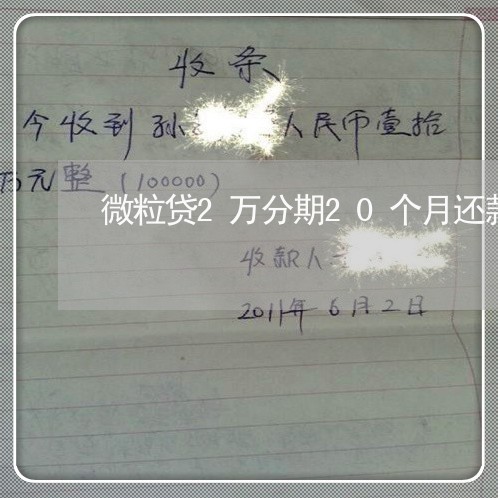 收条
今收到孙 人民币壹拾
万元整(100000)
微粒贷2万分期20个月还款
收款人
2011年6月2日